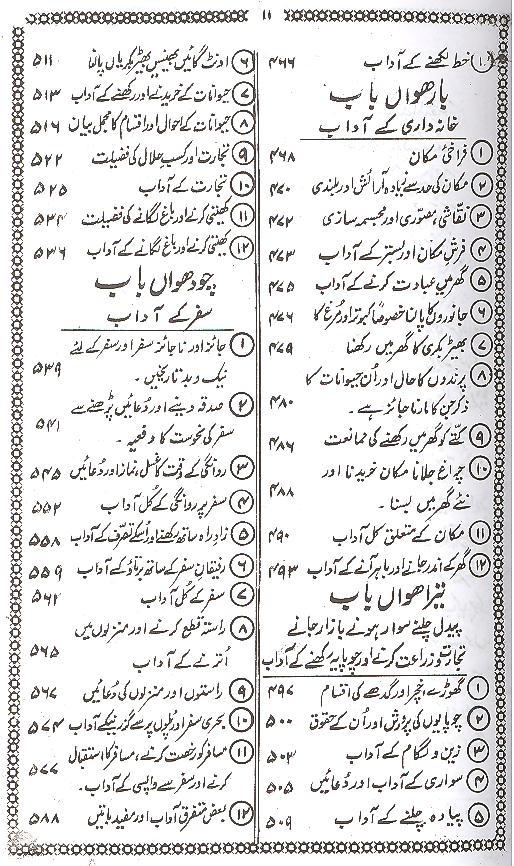 ۱۱
۱۰ خط لکھنے کے آداب ۴۶۶
بارھواں باب
خانہ داری کے آداب
۱ فراخیٔ مکان ۴۶۸
۲ مکان کی حد سے زیادہ آرائش اور بلندی ۴۷۰
۳ نقاشی، مصوّری اور مجسمہ سازی ۴۷۲
۴ فرشِ مکان اور بستر کے آداب ۴۷۳
۵ گھر میں عبادت کرنے کے آداب ۴۷۵
۶ جانوروں کا پالنا خصوصاً کبوتر اور مُرغ کا ۴۷۶
۷ بھیڑ بکری کا گھر میں رکھنا ۴۷۹
۸ پرندوں کا حال اور اُن حیوانات کا
ذکر جن کا مارنا جائز ہے۔ ۴۸۰
۹ کتّے کو گھر میں رکھنے کی ممانعت ۴۸۶
۱۰ چراغ جلانا مکان خریدنا اور
نئے گھر میں بسنا۔ ۴۸۸
۱۱ مکان کے متعلق کل آداب ۴۹۰
۱۲ گھر کے اندر جانے اور باہر آنے کے آداب ۴۹۳
تیرھواں باب
پیدل چلنے سوار ہونے بازار جانے
تجارت و زراعت کرنے اور چوپایہ رکھنے کے آداب
۱ گھوڑے، خچر اور گدھے کی اقسام ۴۹۷
۲ چوپایوں کی پرورش اور اُن کے حقوق ۵۰۰
۳ زین و لگام کے آداب ۵۰۳
۴ سواری کے آداب اور دُعائیں ۵۰۵
۵ پیادہ چلنے کے آداب ۵۰۹
۶ اونٹ گائیں بھینسیں بھیڑ بکریاں پالنا ۵۱۱
۷ حیوانات کے خریدنے اور رکھنے کے آداب ۵۱۳
۸ حیوانات کے احوال اور اقسام کا مجمل بیان ۵۱۶
۹ تجارت اور کسبِ حلال کی فضیلت ۵۲۲
۱۰ تجارت کے آداب ۵۲۵
۱۱ کھیتی کرنے اور باغ لگانے کی فضیلت ۵۳۴
۱۲ کھیتی کرنے اور باغ لگانے کے آداب ۵۳۶
چودھواں باب
سفر کے آداب
۱ جائز اور ناجائز سفر اور سفر کے لئے
نیک و بد تاریخیں۔ ۵۳۹
۲ صدقہ دینے اور دُعائیں پڑھنے سے
سفر کی نحوست کا دفعیہ۔ ۵۴۱
۳ روانگی کے وقت کا غسل، نماز اور دُعائیں ۵۴۵
۴ سفر پر روانگی کے کُل آداب ۵۵۲
۵ زادِ راہ ساتھ رکھنے اور اُسکے تصرّف کے آداب ۵۵۸
۶ رفیقانِ سفر کے ساتھ برتاؤ کے آداب ۵۵۹
۷ سفر کے کُل آداب ۵۶۲
۸ راستہ قطع کرنے اور منزلوں میں
اُترنے کے آداب ۵۶۵
۹ راستوں اور منزلوں کی دُعائیں ۵۶۷
۱۰ بحری سفر اور پُلوں پر سے گزرنیکے آداب ۵۷۴
۱۱ مسافر کو رخصت کرنے، مسافر کا استقبال
کرنے اور سفر سے واپسی کے آداب۔ ۵۷۷
۱۲ بعض متفرق آداب اور مفید باتیں ۵۸۸